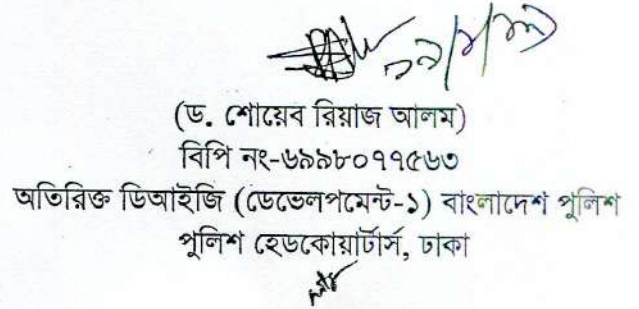 (ড. শোয়েব রিয়াজ আলম)
বিপি নং-৬৯৯৮০৭৭৫৬৩
অতিরিক্ত ডিআইজি (ডেভেলপমেন্ট-১) বাংলাদেশ পুলিশ
পুলিশ হেডকোয়ার্টার্স, ঢাকা